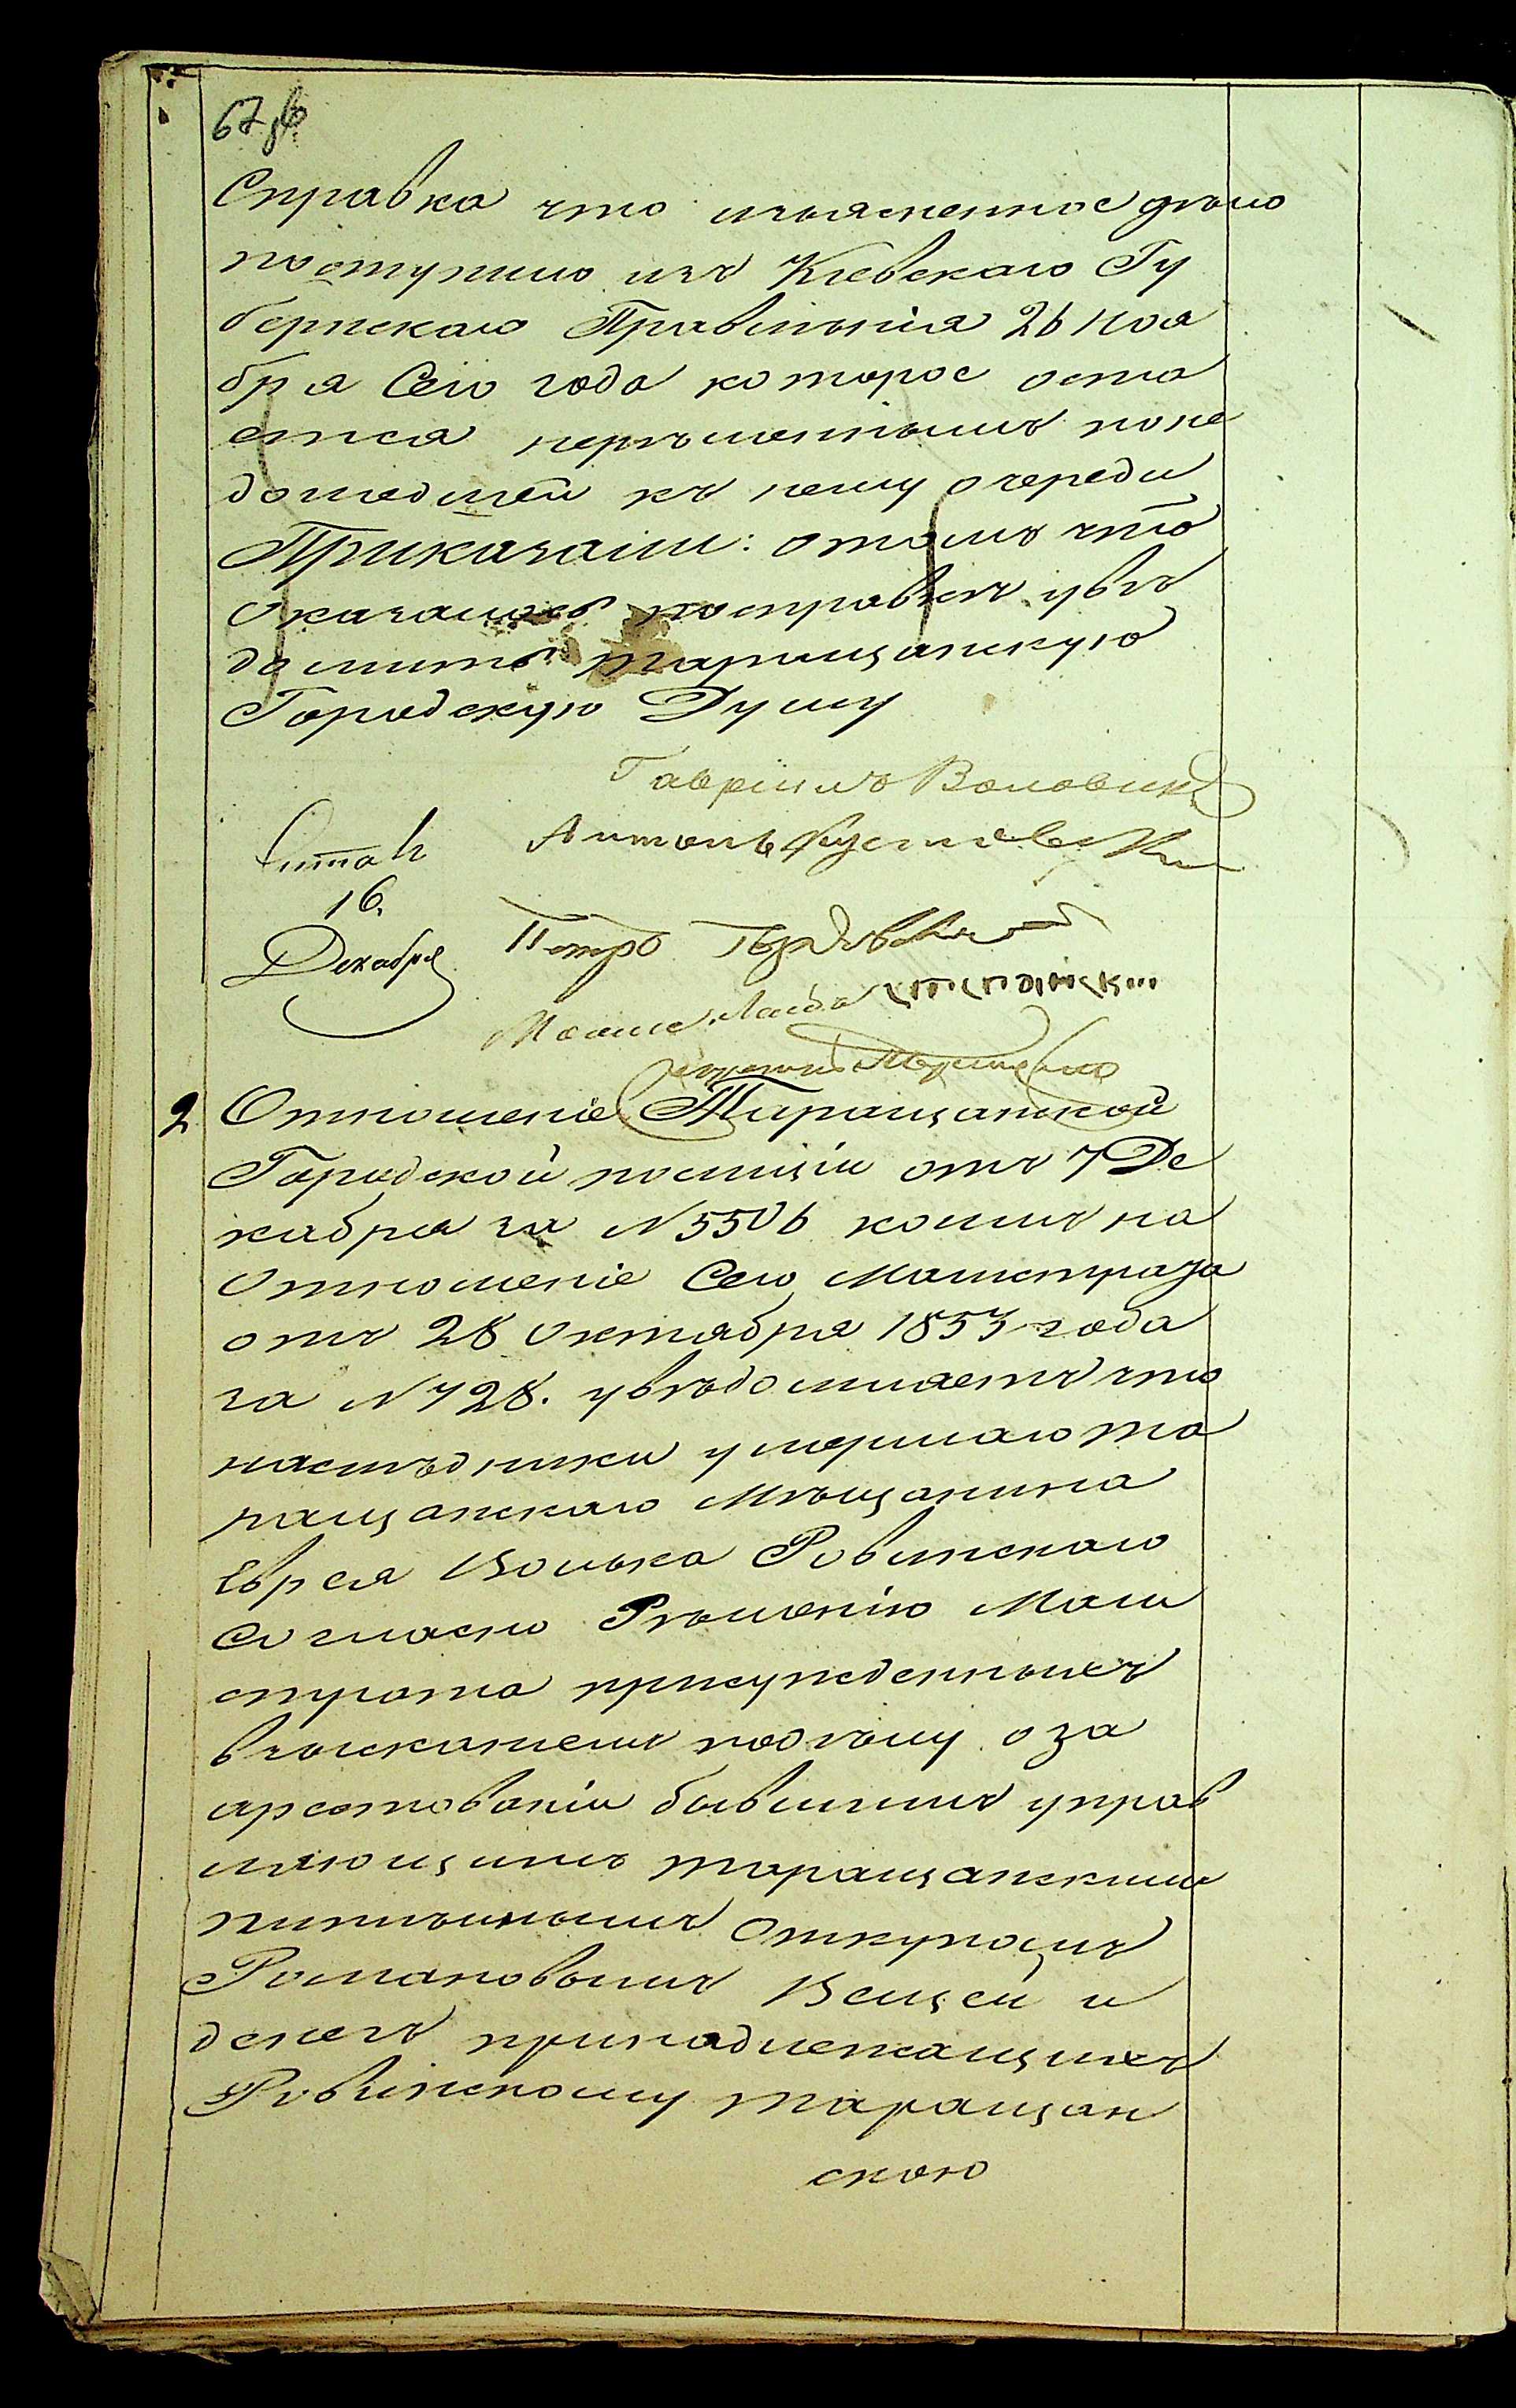 67 об
Справка что изъясненное дѣло
поступило изъ Кіевскаго Гу
бернскаго Правленія 26 Ноя
бря Сего года которое оста
ется нерѣшеннымъ поне
дошедшей къ нему очереди
Приказали: отомъ что
Оказалось посправкѣ увѣ
домить таращанскую
Городскую Думу
Гавріило Воловик
Читалъ
Антонъ
16.
Декабря
Петро
Мошко
2 Отношеніе Таращанской
Городской полиціи отъ 7 Де
кабря за N 5506 коимъ на
Отношеніе Сего Магистрата
отъ 28 Октября 1853 года
за N 728. увѣдомляетъ что
наслѣдники умершаго та
ращанскаго Мѣщанина
Еврея Волька Ровинскаго
Согласно Рѣшенію Маги
страта присужденныхъ
взысканіемъ подѣлу о за
арестованіи бывшимъ управ
ляющимъ таращанскимъ
питѣйнымъ Откупомъ
Романовымъ Вещей и
денегъ принадлежащихъ
Ровинскому таращан
скою